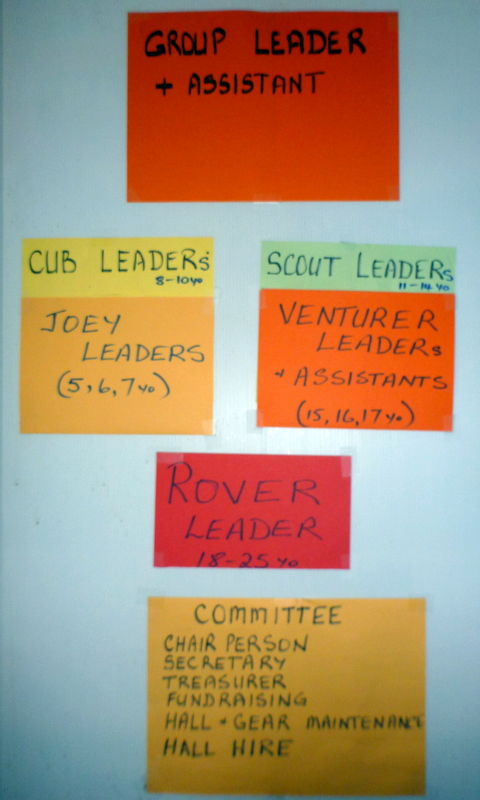 GROUP LEADER
+ ASSISTANT
CUB LEADERS
8-10yo
JOEY
LEADERS
(5,6,7yo)
SCOUT LEADERS
11-14 yo
VENTURER
LEADERS
+ ASSISTANTS
(15,16,17yo)
ROVER
LEADER
18-25 yo
COMMITTEE
CHAIR PERSON
SECRETARY
TREASURER
FUNDRAISING
HALL + GEAR MAINTENANCE
HALL HIRE